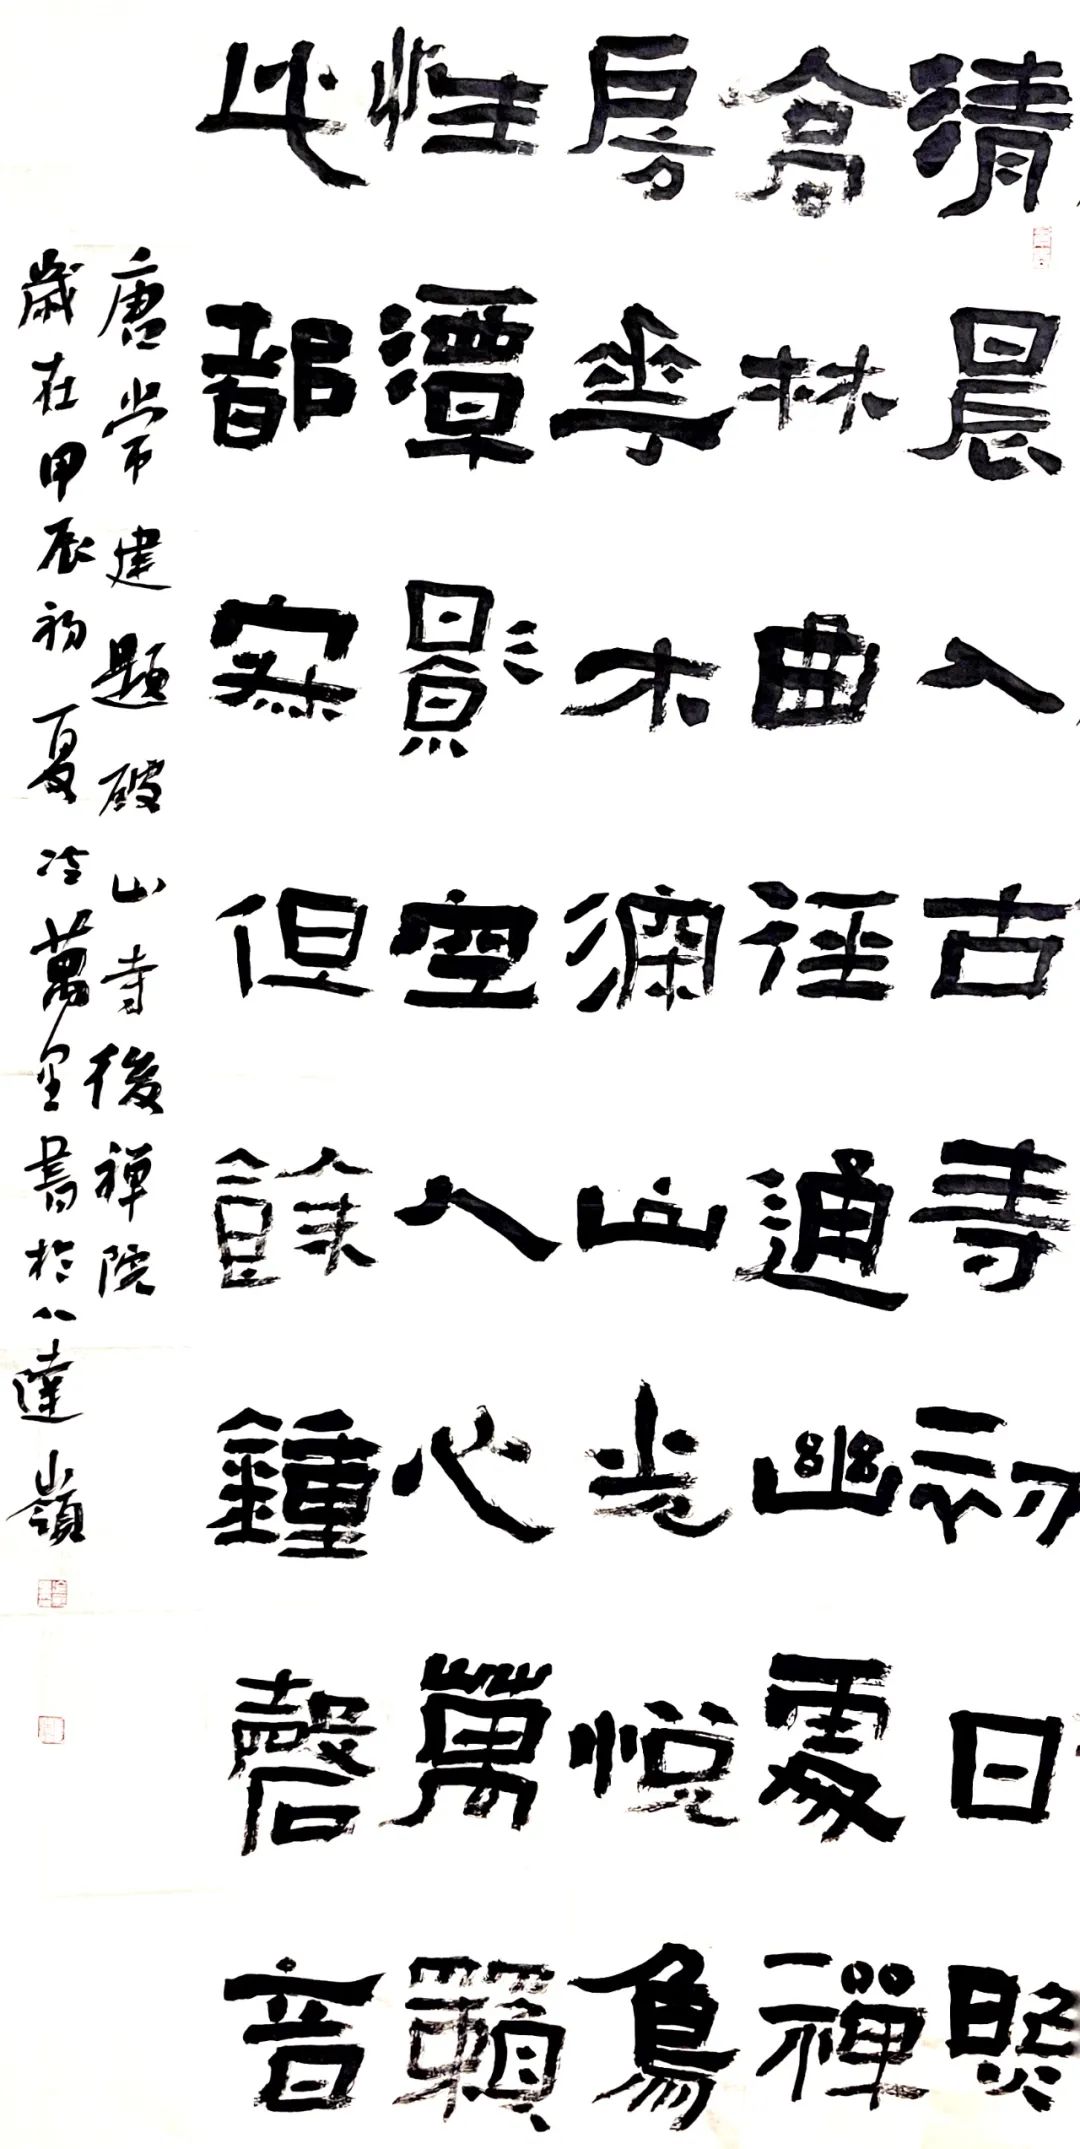 清晨入古寺初日照
高林曲徑通幽處禪
房華木深山光悅鳥
性潭影空人心萬籟
此都寂但餘鐘磬音
唐常建題破山寺後禪院
歲在甲辰初夏冷萬里書於八達嶺